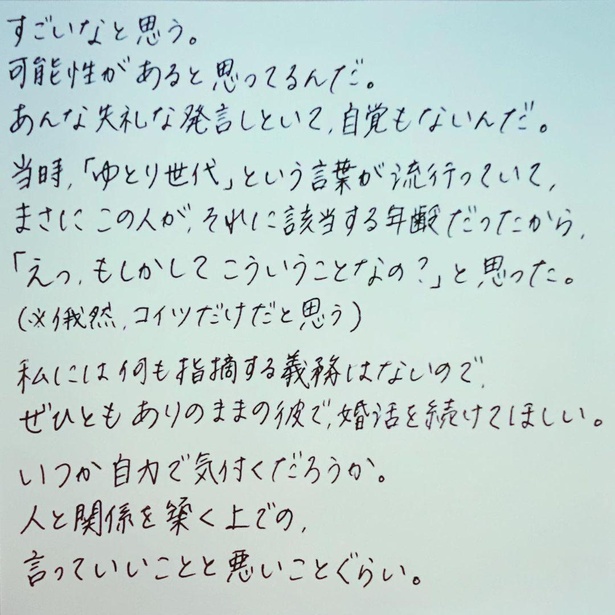 すごいなと思う。
可能性があると思ってるんだ。
あんな失礼な発言しといて、自覚もないんだ。
当時、「ゆとり世代」という言葉が流行っていて、
まさにこの人が、それに該当する年齢だったから、
「えっ、もしかしてこういうことなの？」と思った。
(※俄然、コイツだけだと思う)
私には何も指摘する義務はないので、
ぜひともありのままの彼で、婚活を続けてほしい。
いつか自力で気付くだろうか。
人と関係を築く上での、
言っていいことと悪いことぐらい。